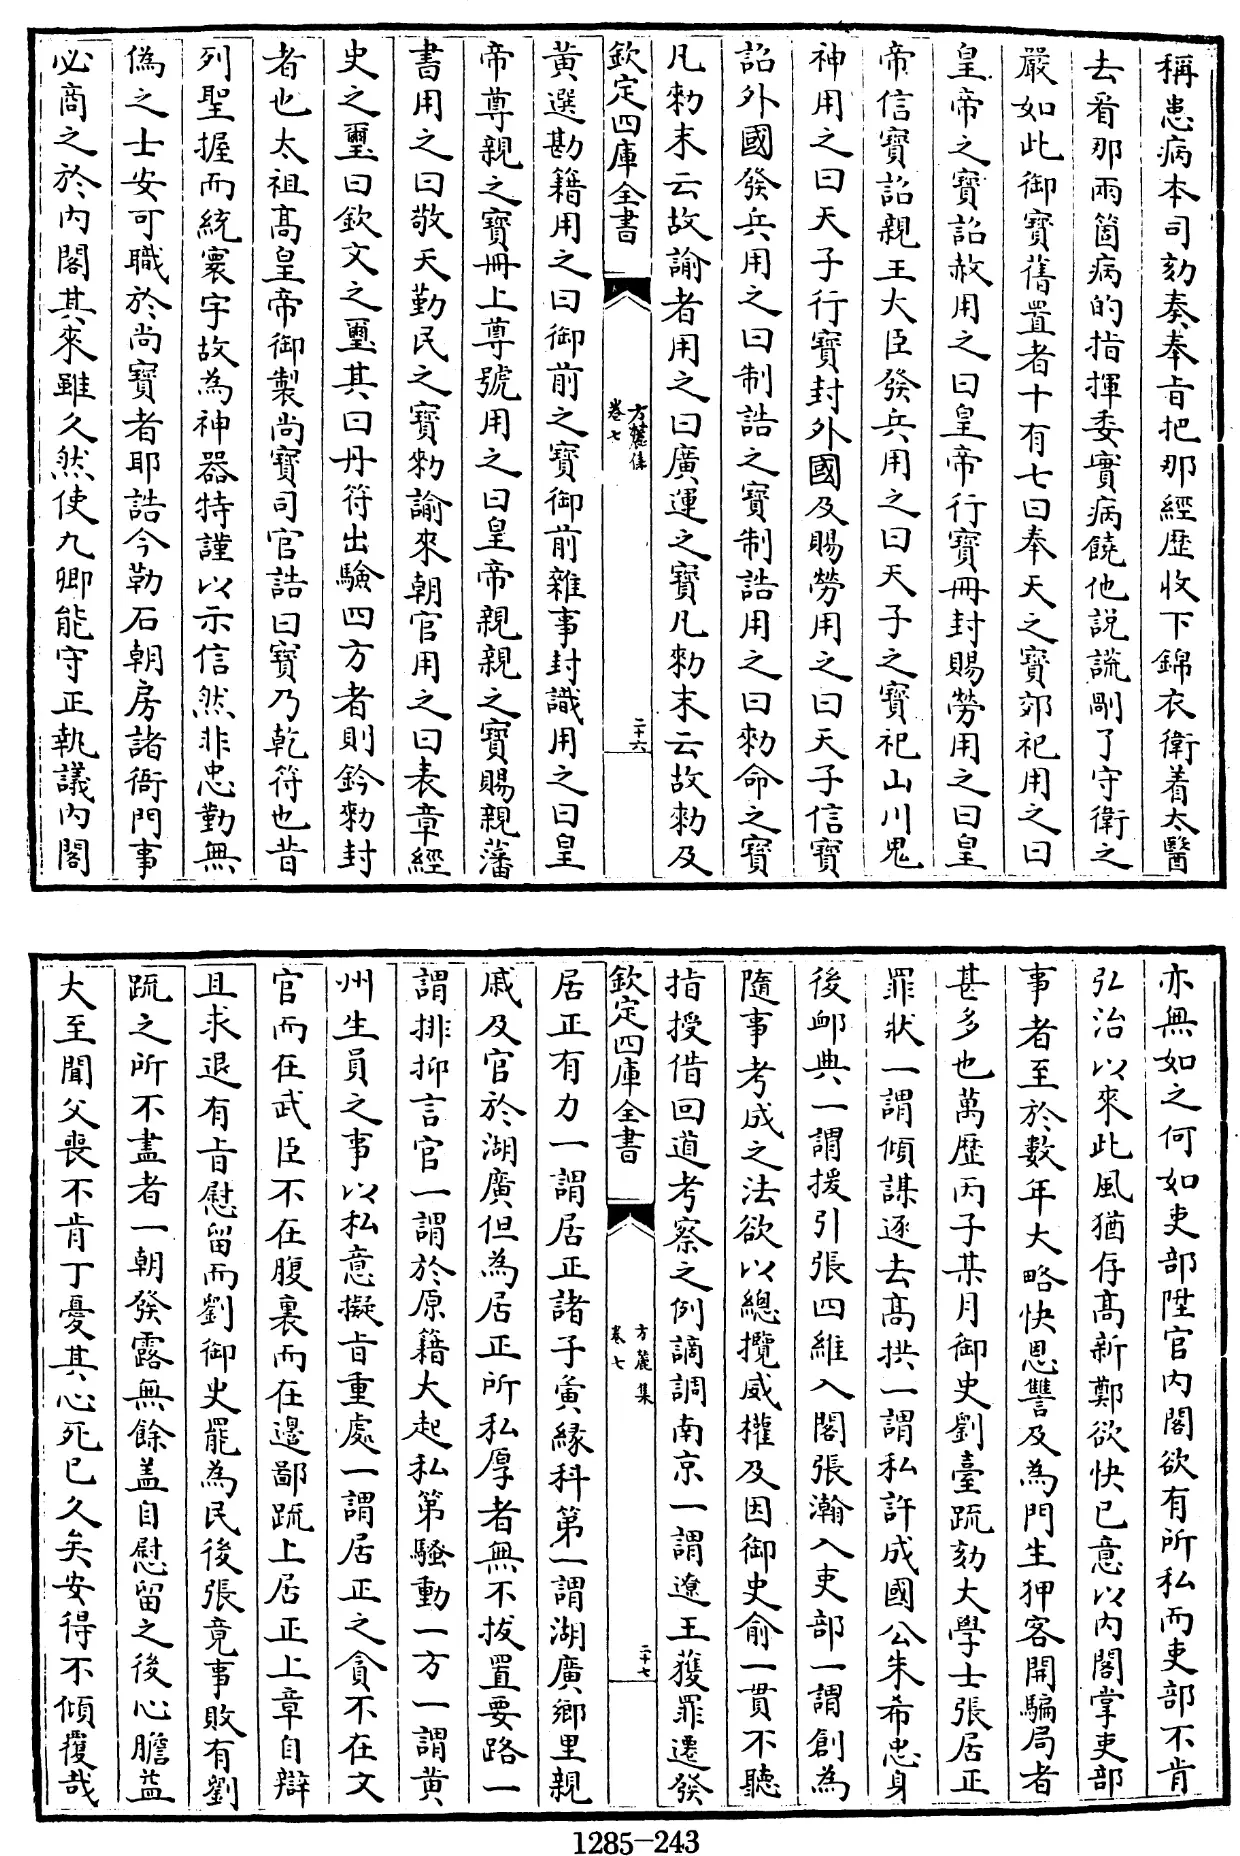 稱患病本司劾奏奉㫖把那經歴收下錦衣衛着太醫
去看那兩箇病的指揮委實病饒他説謊剛了守衛之
嚴如此御寳舊置者十有七曰奉天之寳郊祀用之曰
皇帝之寳詔赦用之曰皇帝行寳冊封賜勞用之曰皇
帝信寳詔親王大臣發兵用之曰天子之寳祀山川鬼
神用之曰天子行寳封外國及賜勞用之曰天子信寳
詔外國發兵用之曰制誥之寳制誥用之曰勑命之寳
凡勑末云故諭者用之曰廣運之寳凡勑末云故勑及
欽定四庫全書
方麓集
卷七
二十六
黄選勘籍用之曰御前之寳御前雜事封識用之曰皇
帝尊親之寳冊上尊號用之曰皇帝親親之寳賜親藩
書用之曰敬天勤民之寳勑諭來朝官用之曰表章經
史之璽曰欽文之璽其曰丹符出驗四方者則鈐勑封
者也太祖髙皇帝御製尚寳司官誥曰寳乃乾符也昔
列聖握而統寰宇故為神器特謹以示信然非忠勤無
偽之士安可職於尚寳者耶誥今勒石朝房諸衙門事
必商之於内閣其來雖久然使九卿能守正執議内閣
亦無如之何如吏部陞官内閣欲有所私而吏部不肯
弘治以來此風猶存髙新鄭欲快已意以内閣掌吏部
事者至於數年大略快恩讐及為門生狎客開騙局者
甚多也萬歴丙子某月御史劉臺疏劾大學士張居正
罪狀一謂傾謀逐去髙拱一謂私許成國公朱希忠身
後䘏典一謂援引張四維入閣張瀚入吏部一謂創為
隨事考成之法欲以總攬威權及因御史俞一貫不聽
指授借回道考察之例謫調南京一謂遼王獲罪遷發
欽定四庫全書
方麓集
卷七
二十七
居正有力一謂居正諸子夤縁科第一謂湖廣鄉里親
戚及官於湖廣但為居正所私厚者無不拔置要路一
謂排抑言官一謂於原籍大起私第騷動一方一謂黄
州生員之事以私意擬㫖重處一謂居正之貪不在文
官而在武臣不在腹裏而在邉鄙疏上居正上章自辯
且求退有㫖慰留而劉御史罷為民後張竟事敗有劉
疏之所不盡者一朝發露無餘盖自慰留之後心膽益
大至聞父喪不肯丁憂其心死已久矣安得不傾覆哉
1285-243